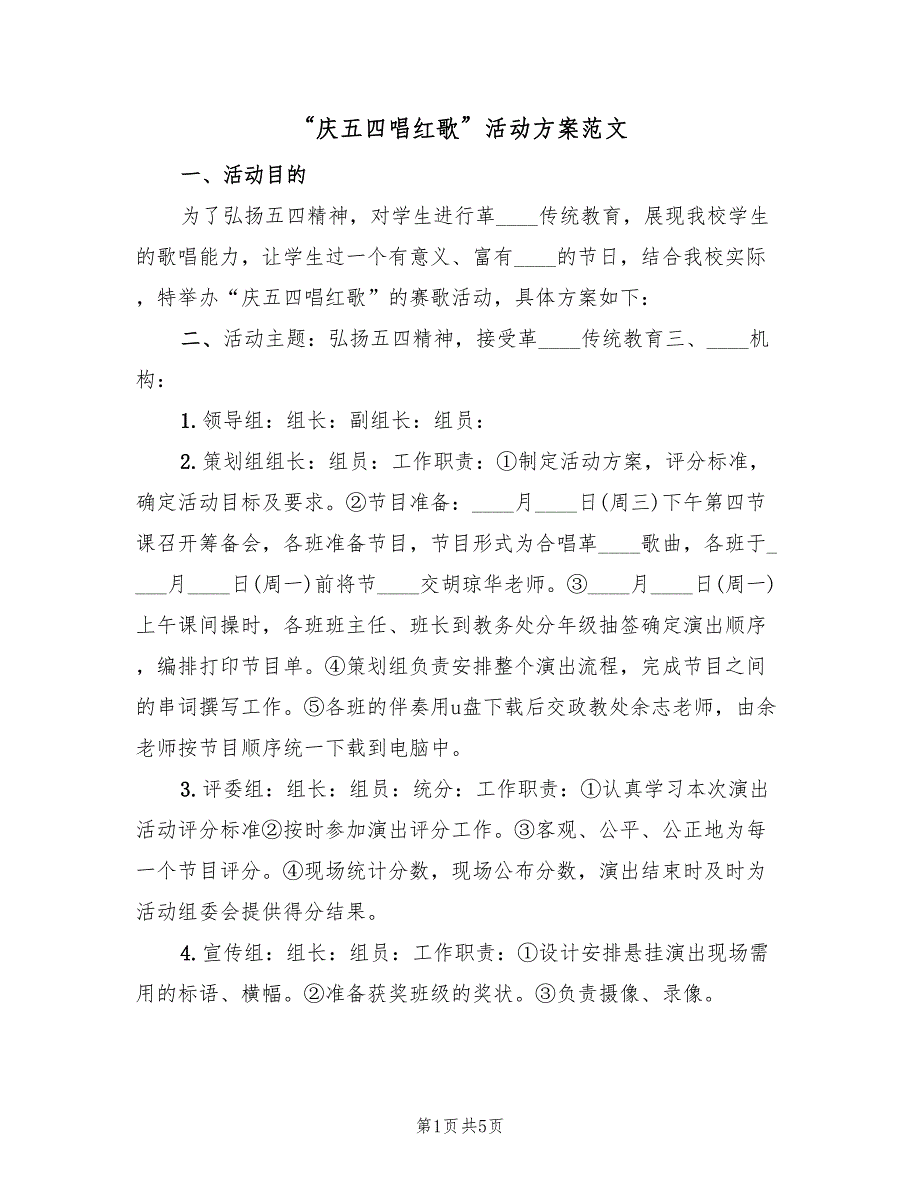 “庆五四唱红歌”活动方案范文
一、活动目的
为了弘扬五四精神，对学生进行革____传统教育，展现我校学生
的歌唱能力，让学生过一个有意义、富有____的节日，结合我校实际
，特举办“庆五四唱红歌”的赛歌活动，具体方案如下：
二、活动主题：弘扬五四精神，接受革____传统教育三、____机
构：
1. 领导组：组长：副组长：组员：
2. 策划组组长：组员：工作职责：①制定活动方案，评分标准，
确定活动目标及要求。②节目准备：____月____日(周三)下午第四节
课召开筹备会，各班准备节目，节目形式为合唱革____歌曲，各班于_
___月____日(周一)前将节____交胡琼华老师。③____月____日(周一)
上午课间操时，各班班主任、班长到教务处分年级抽签确定演出顺序
，编排打印节目单。④策划组负责安排整个演出流程，完成节目之间
的串词撰写工作。⑤各班的伴奏用u盘下载后交政教处余志老师，由余
老师按节目顺序统一下载到电脑中。
3. 评委组：组长：组员：统分：工作职责：①认真学习本次演出
活动评分标准②按时参加演出评分工作。③客观、公平、公正地为每
一个节目评分。④现场统计分数，现场公布分数，演出结束时及时为
活动组委会提供得分结果。
4. 宣传组：组长：组员：工作职责：①设计安排悬挂演出现场需
用的标语、横幅。②准备获奖班级的奖状。③负责摄像、录像。
第1页共5页